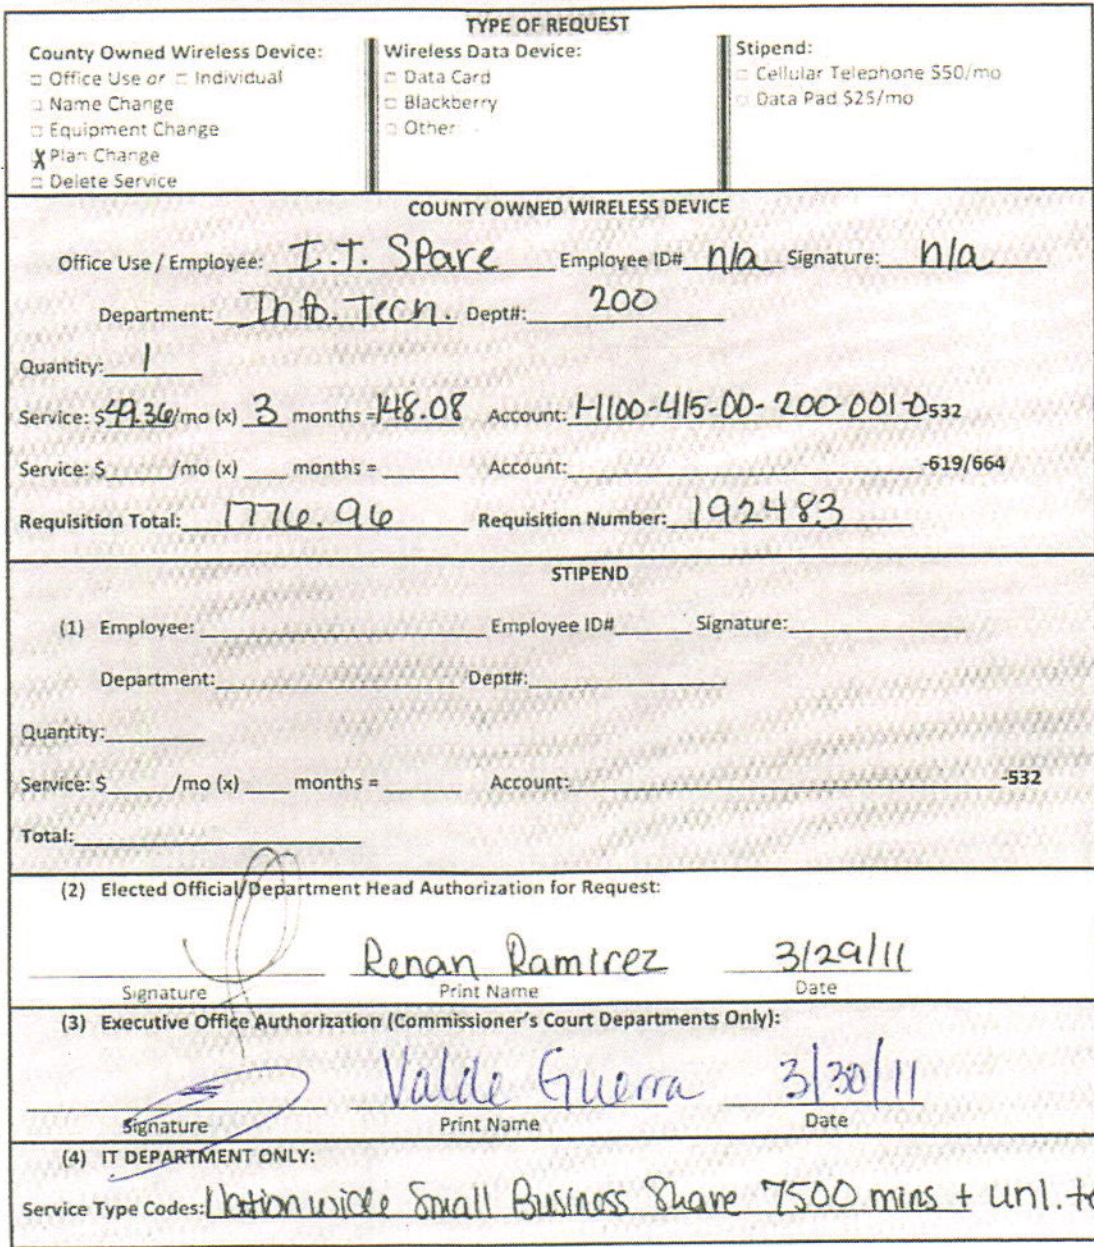 TYPE OF REQUEST
County Owned Wireless Device:
□ Office Use or □ Individual
□ Name Change
□ Equipment Change
X Plan Change
□ Delete Service
Wireless Data Device:
□ Data Card
□ Blackberry
□ Other:
Stipend:
□ Cellular Telephone $50/mo
□ Data Pad $25/mo
COUNTY OWNED WIRELESS DEVICE
Office Use / Employee: I.T. SPare Employee ID# n/a Signature: n/a
Department: Info. Tech. Dept#: 200
Quantity: 1
Service: $49.36/mo (x) 3 months =148.08 Account: 1-1100-415-00-200-001-0532
Service: $ /mo (x) months = Account: -619/664
Requisition Total: 1776.96 Requisition Number: 192483
STIPEND
(1) Employee: Employee ID# Signature:
Department: Dept#:
Quantity:
Service: $ /mo (x) months = Account: -532
Total:
(2) Elected Official/Department Head Authorization for Request:
Renan Ramirez 3/29/11
Signature Print Name Date
(3) Executive Office Authorization (Commissioner's Court Departments Only):
Valde Guerra 3/30/11
Signature Print Name Date
(4) IT DEPARTMENT ONLY:
Service Type Codes: Nationwide Small Business Share 7500 mins + unl. te